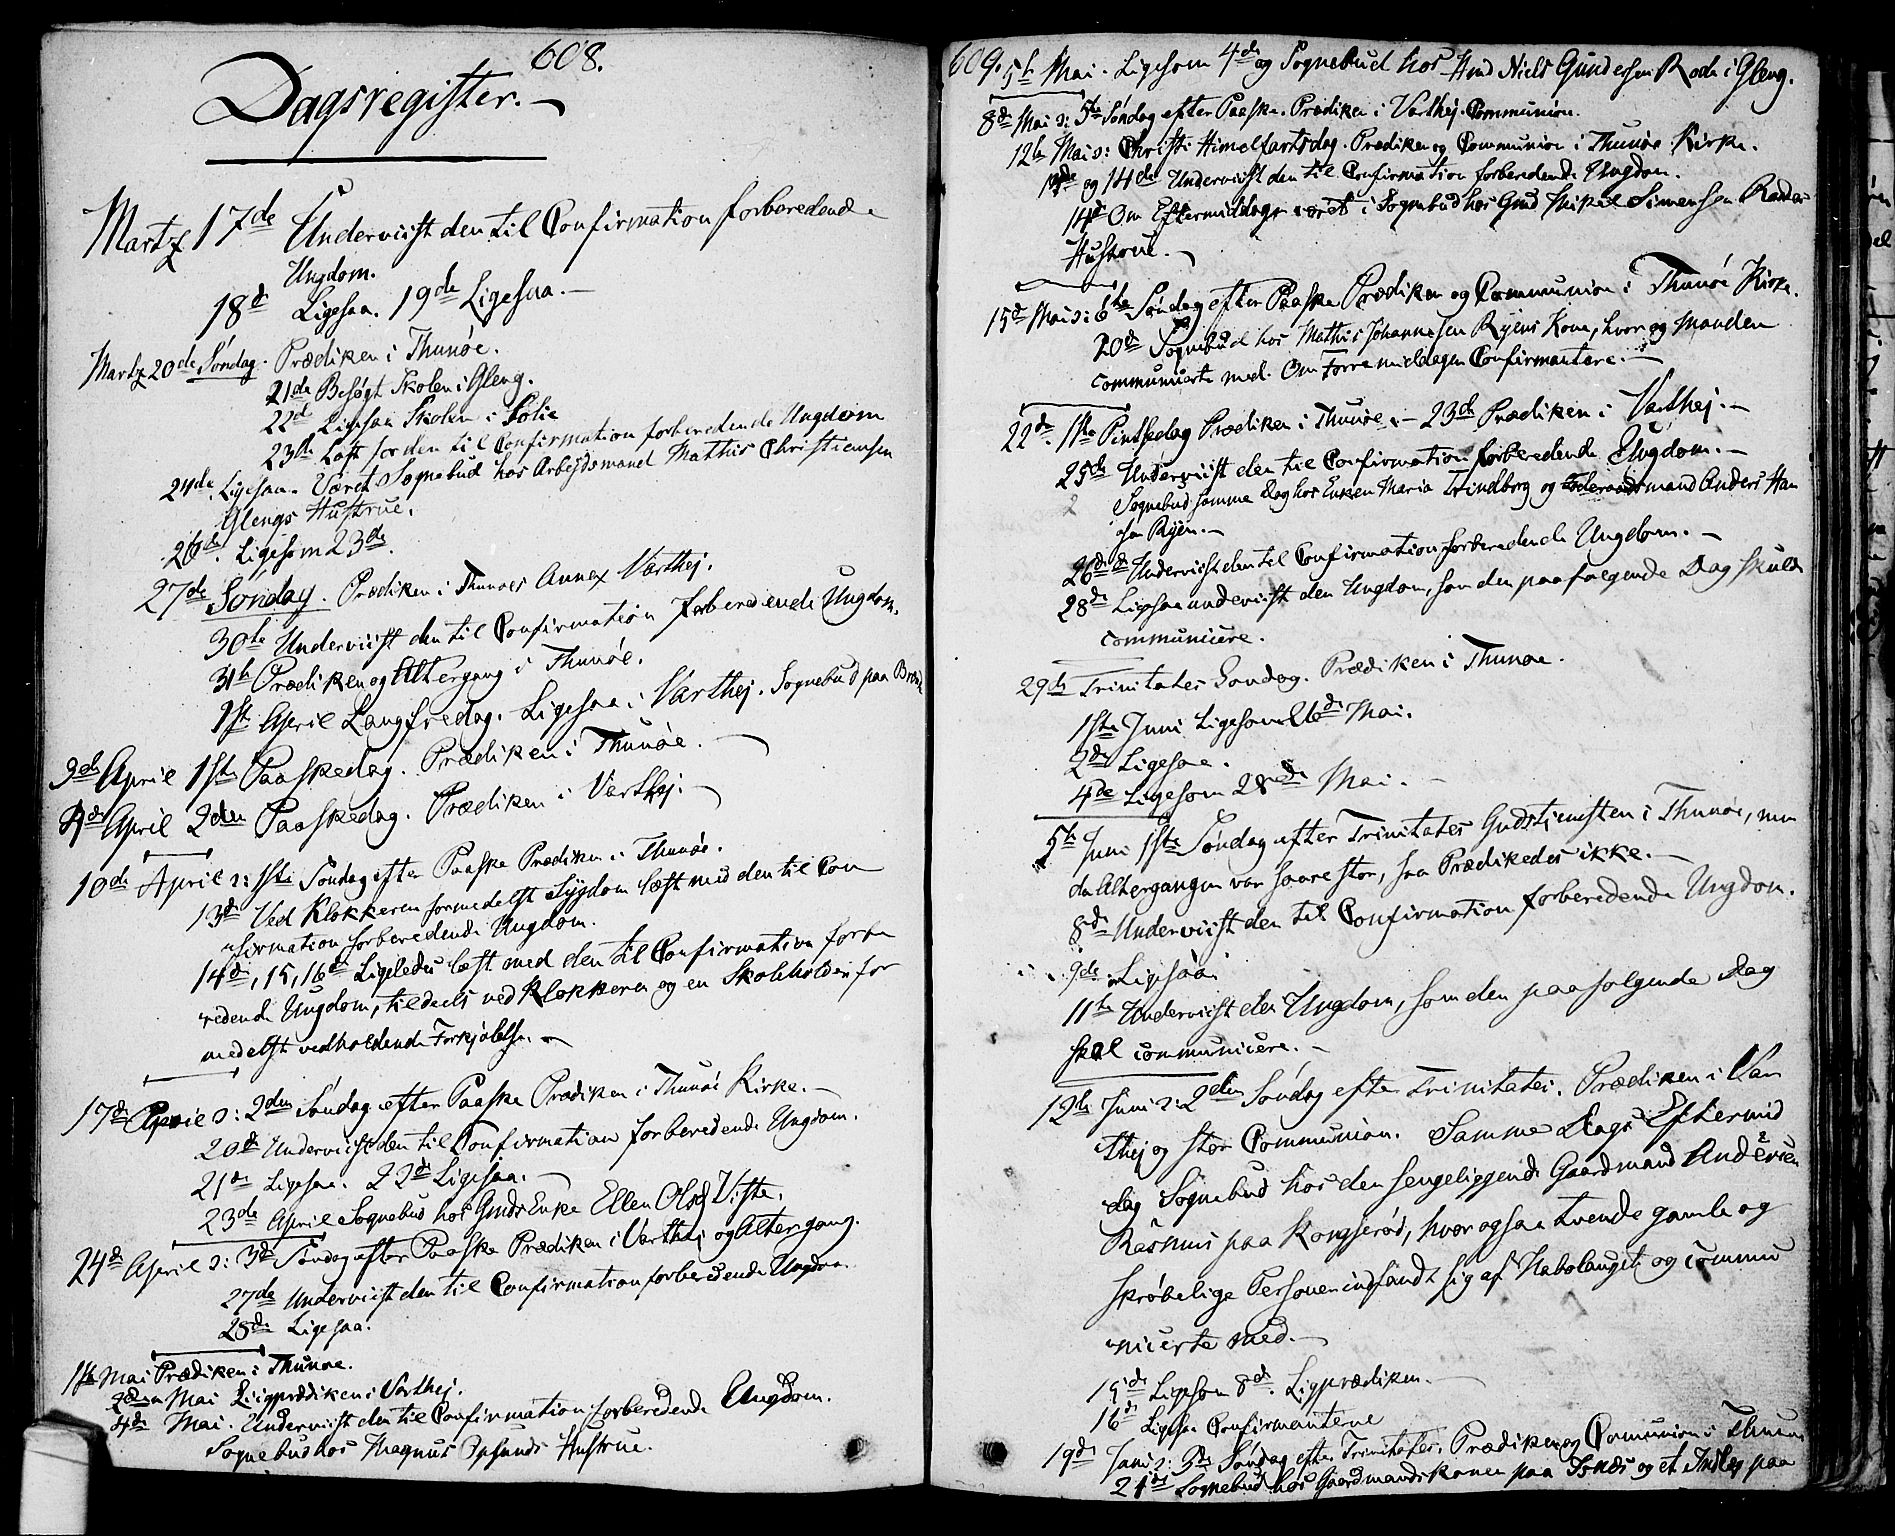 608.
Dagsregister.
Martz 17de Underviist den til Confirmation forberedende
Ungdom.
18de Ligesaa. 19de Ligesaa.
Martz 20de Søndag. Prædiken i Thunøe.
21de Besøgt Skolen i Gleng.
22d Ligesaa Skolen i Solie
23de Læst for den til Confirmation forberedende Ungdom
24de Ligesaa. Været Sognebud hos Arbejdsmand Mathis Christiensen
Glengs Hustrue.
26de. Ligesom 23de.
27de Søndag. Prædiken i Thunøes Annex Varthej.
30te Underviist den til Confirmation forberedende Ungdom.
31te Prædiken og Altergang i Thunøe.
1ste April Langfredag. Ligesaa i Varthej. Sognebud paa
3die April 1ste Paaskedag. Prædiken i Thunøe.
4de April 2den Paaskedag. Prædiken i Varthej.
10de April ɔ: 1ste Søndag efter Paaske Prædiken i Thunøe.
13de Ved Klokkeren formedelst Sygdom læst med den til Con
firmation forberedende Ungdom.
14de, 15, 16de Ligeledes læst med den til Confirmation forbe
redende Ungdom, tildeels ved Klokkeren og en Skoleholder for
medelst vedholdende Forkjølelse.
17de April ɔ: 2den Søndag efter Paaske Prædiken i Thunøe Kirke.
20de Underviist den til Confirmation forberedende Ungdom.
21de Ligesaa. 22de Ligesaa.
23de April Sognebud hos Gmds Enke Ellen Olsd Viste.
24de April ɔ: 3de Søndag efter Paaske Prædiken i Varthej og Altergang.
27de Underviist den til Confirmation forberedende Ungdom.
28de Ligesaa.
1ste Mai Prædiken i Thunøe.
2den Mai Liigprædiken i Varthej.
4de Mai. Underviist den til Confirmation forberedende Ungdom.
Sognebud hos Magnus Opsunds Hustrue.
609. 5te Mai. Ligesom 4de og Sognebud hos Hmd Niels Gundersen Rode i Gleng.
8de Mai ɔ: 5te Søndag efter Paaske. Prædiken i Varthej. Communion.
12te Mai ɔ: Christi Himelfartsdag. Prædiken og Communion i Thunøe Kirke.
13de og 14de Underviist den til Confirmation forberedende Ungdom.
14de Om Eftermiddagen været i Sognebud hos Gmd Simensen
Hustrue.
15de Mai ɔ: 6te Søndag efter Paaske Prædiken og Communion i Thunøe Kirke.
20de Sognebud hos Mathis Johannesen Ryens Kone, hvor og Manden
communicerte med. Om Formiddagen Confirmantere.
22de. 1ste Pintsedag Prædiken i Thunøe. 23de Prædiken i Varthej.
25de Underviist den til Confirmation forberedende Ungdom.
2 Sognebud samme Dag hos Enken Maria Trindborg og mand Anders Han
sen Ryen.
26de Underviist den til Confirmation forberedende Ungdom.
28de Ligesaa underviist den Ungdom, som den paafølgende Dag skulde
communicere.
29de Trinitates Søndag. Prædiken i Thunøe.
1ste Juni Ligesom 26de Mai.
2de Ligesaa.
4de Ligesom 28de Mai.
5te Juni 1ste Søndag efter Trinitates Gudstjensten i Thunøe, men
da Altergangen var saare stor, saa Prædikedes ikke.
8de Underviist den til Confirmation forberedende Ungdom.
9de Ligesaa
11te Underviist den Ungdom, som den paafølgende Dag
skal communicere.
12te Juni ɔ: 2den Søndag efter Trinitates. Prædiken i Var
thej og stor Communion. Samme Dags Eftermid
dag Sognebud hos den sengeliggende Gaardmand Andersen
Rasmus paa Kongsrød, hvor ogsaa tvende gamle og
skrøbelige Personer indfandt sig af Nabolauget og commu
nicerte med.
15de Ligesom 8de. Ligprædiken.
16de Ligesaa Confirmanterne
19de Juni ɔ: 3de Søndag efter Trinitates. Prædiken og Communion i Thunøe
21de Sognebud hos Gaardmandskonen paa Isnæs og et Indlæg paa